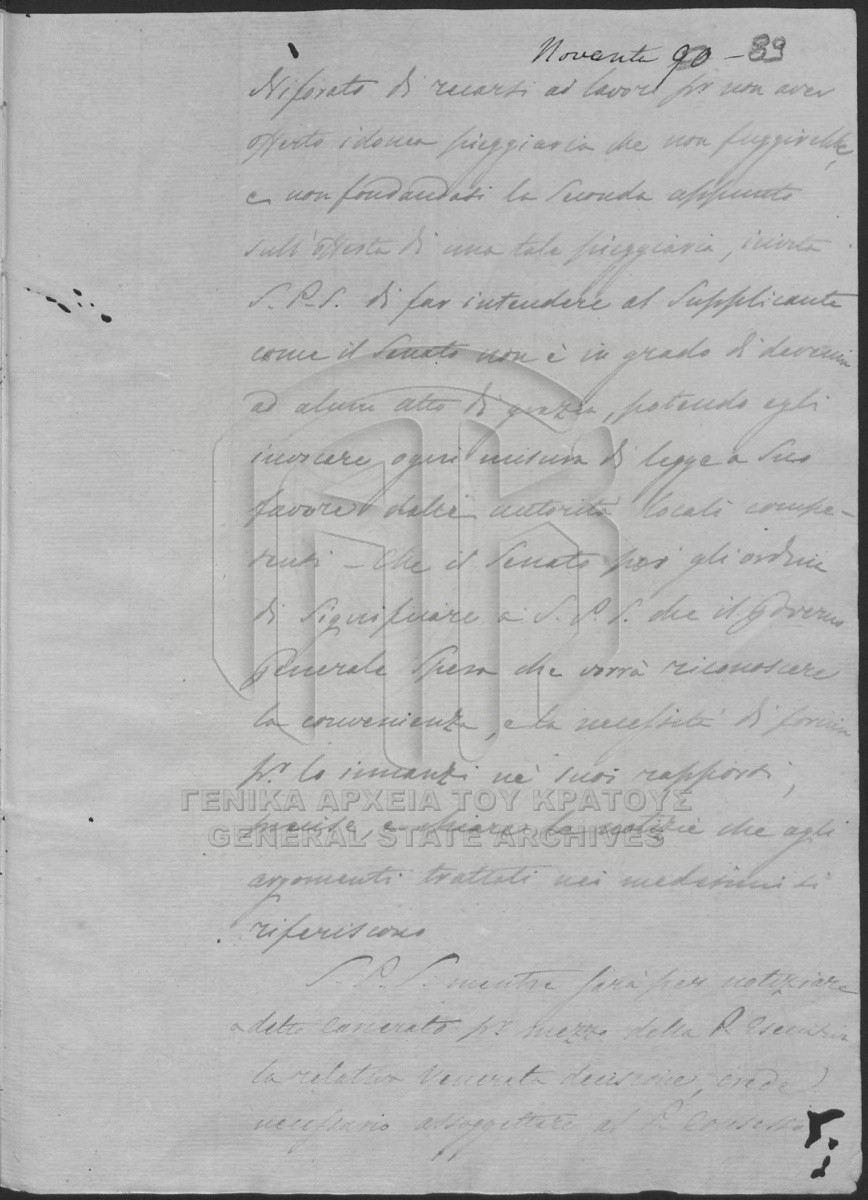 Novanta 90 - 89
di recarsi ai lavori pr. non aver
offerto idonea pieggiaria che non fuggirebbe,
e non fondandosi la seconda appunto
sull'offerta di una tale pieggiaria, invita
S. P. S. di far intendere al Supplicante
come il Senato non è in grado di devenir
ad alcun atto di grazia, potendo egli
invocare ogni misura di legge a suo
favore dalle autorità locali compe-
tenti - Che il Senato poi gli ordina
di significare a S. P. S. che il Governo
Generale spera che vorrà riconoscere
la convenienza, e la necessità di fornir
pr. lo innanzi ne' suoi rapporti,
precise, e chiare le notizie che agli
argomenti trattati nei medesimi si
riferiscono
S. P. S. mentre farà per notiziare
a detto Carcerato pr. mezzo della P.
la relativa Venerata decisione, crede
necessario assoggettare al P. Consesso
ΓΕΝΙΚΑ ΑΡΧΕΙΑ ΤΟΥ ΚΡΑΤΟΥΣ
GENERAL STATE ARCHIVES